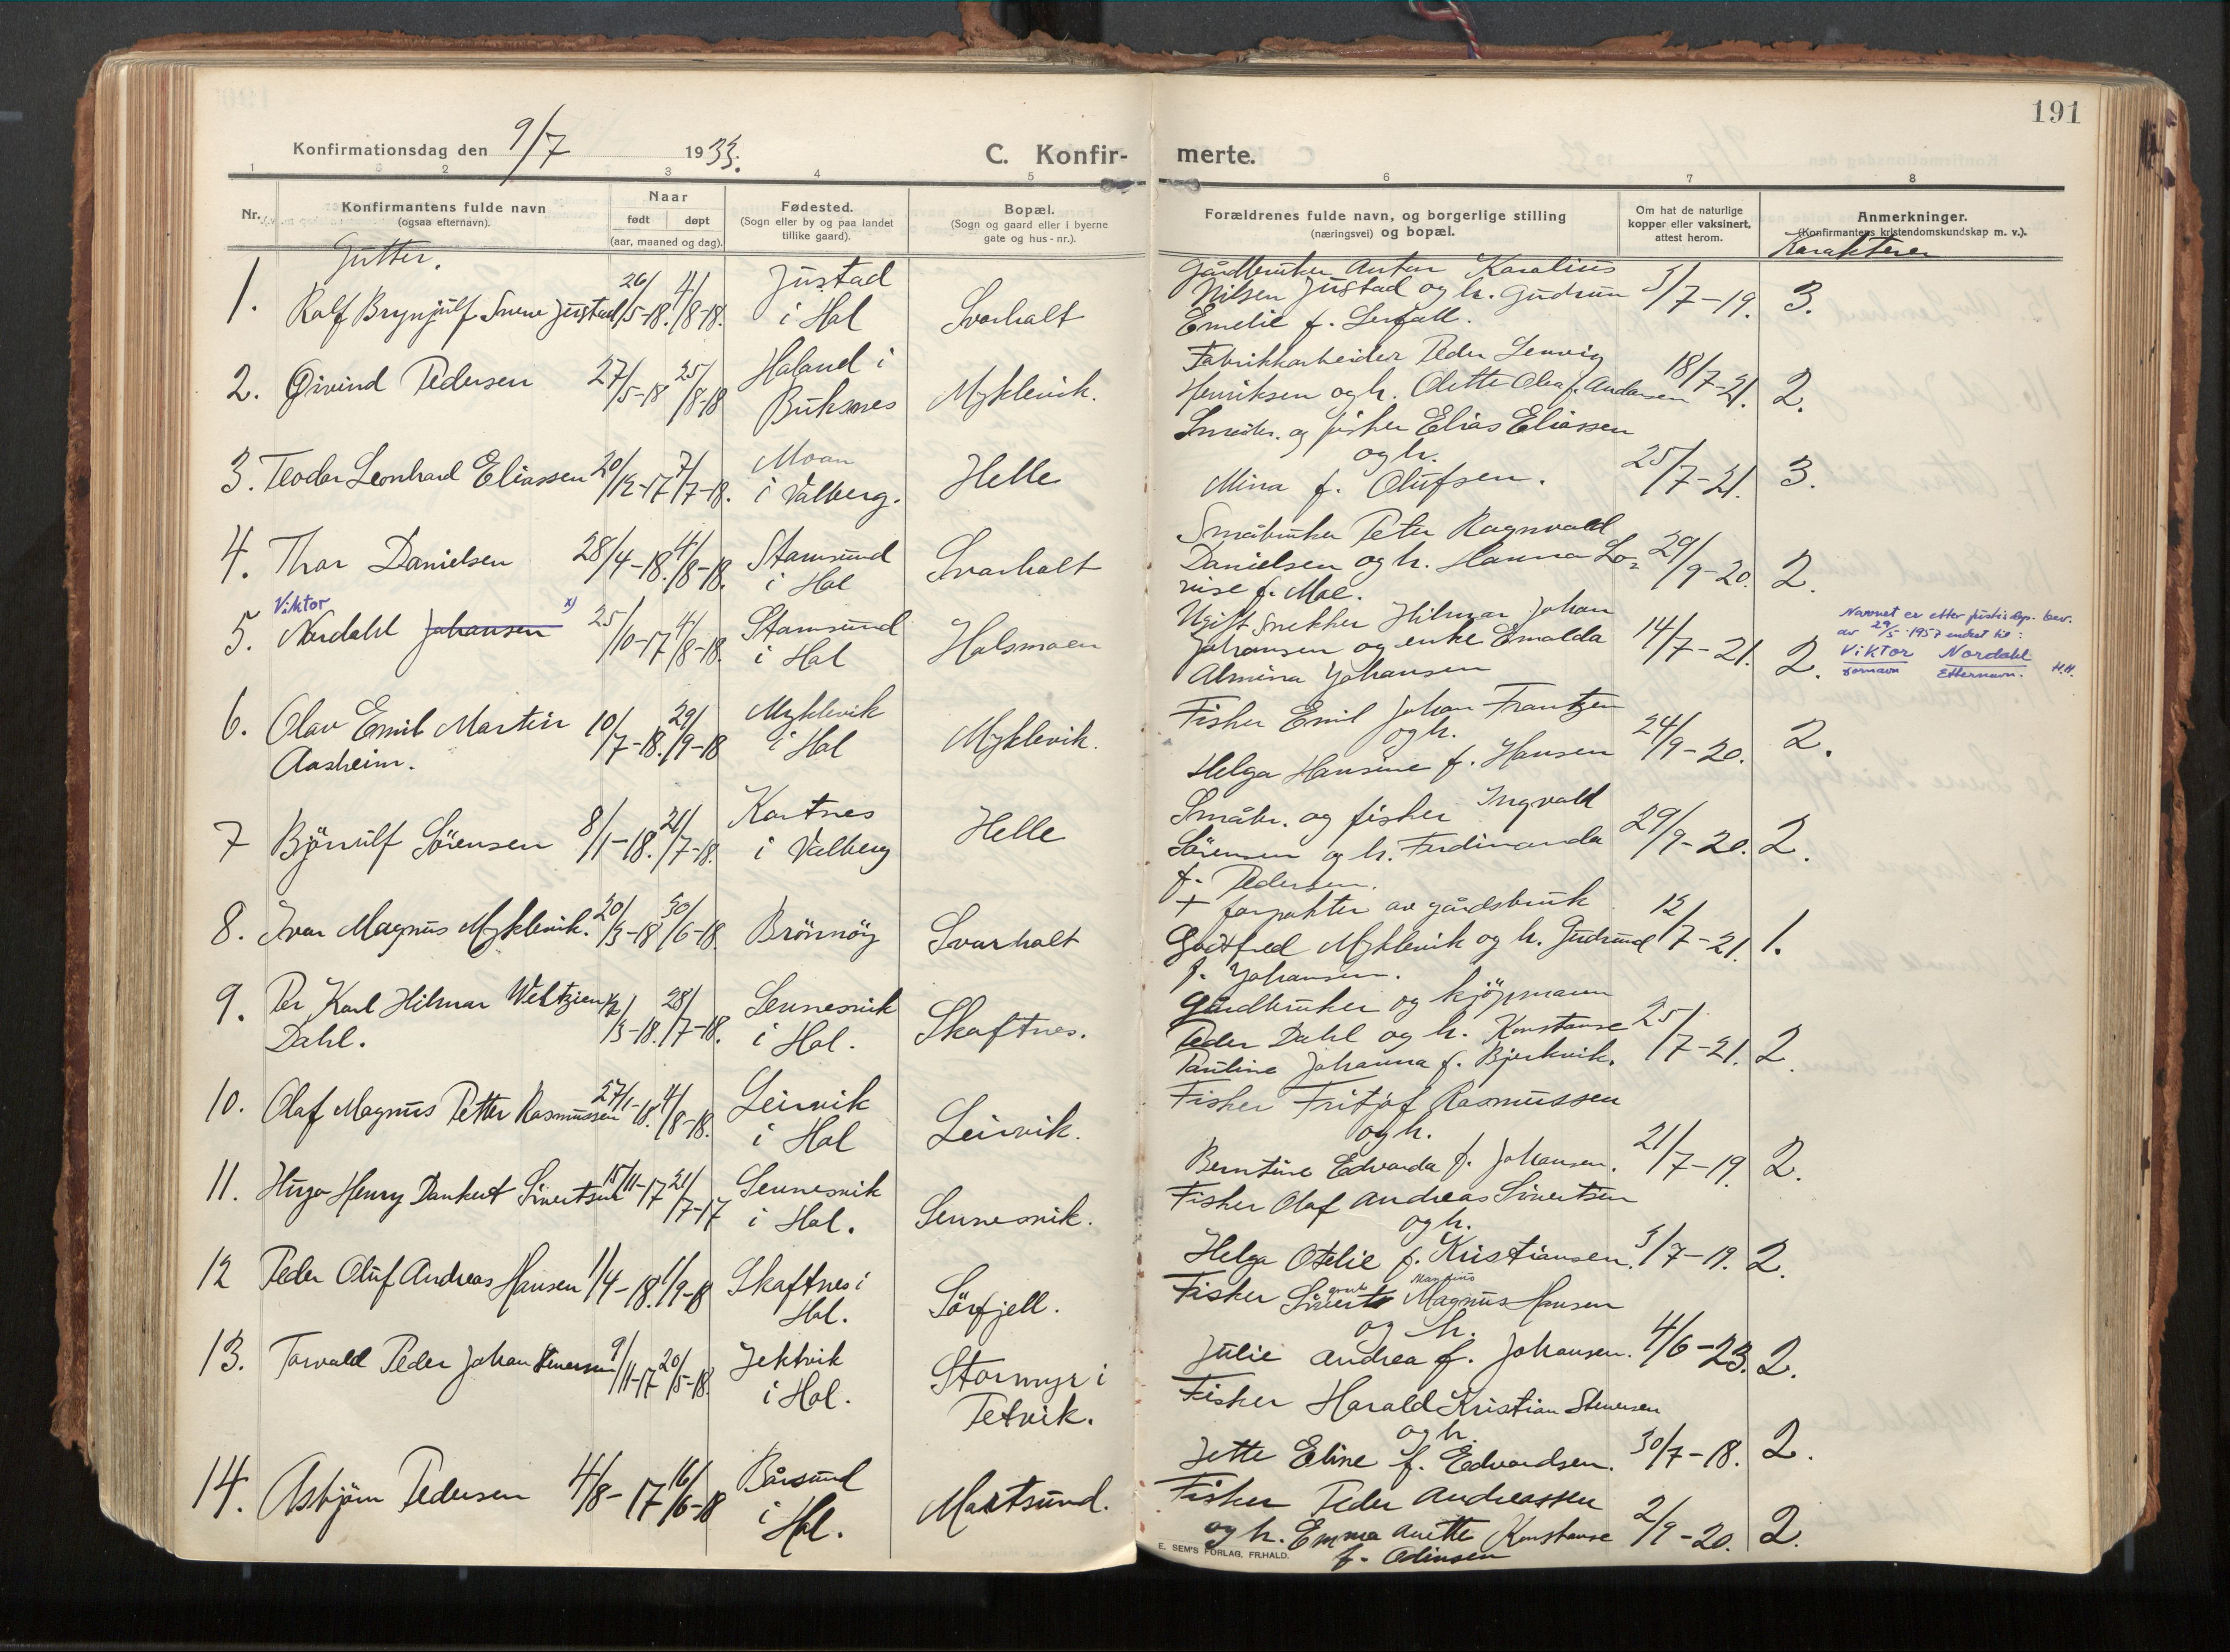 191
Konfirmationsdag den 9/7 1933.
C. Konfir-
merte.
1 2 3 4 5
6 7 8
Nr.
Konfirmantens fulde navn
(ogsaa efternavn).
Naar
født døpt
(aar, maaned og dag).
Fødested.
(Sogn eller by og paa landet
tillike gaard).
Bopæl.
(Sogn og gaard eller i byerne
gate og hus-nr.).
Forældrenes fulde navn, og borgerlige stilling
(næringsvei) og bopæl.
Om hat de naturlige
kopper eller vaksinert,
attest herom.
Anmerkninger.
(Konfirmantens kristendomskundskap m. v.).
Karakterer
Gutter.
1. Rolf Brynjulf Sneve Justad 26/5-18. 4/8-18. Justad
i Hol
Svarholt
Gårdbruker Anton Karolius
Nilsen Justad og h. Gudrun
Emelie f. Lerfall.
3/7-19. 3.
2. Øivind Pedersen 27/5-18 25/8-18 Haland i
Buksnes
Myklevik.
Fabrikkarbeider Peder Lenvig
Henriksen og h. Olette Olea f. Andersen
18/7-21. 2.
3. Teodor Leonhard Eliassen 20/12-17 7/7-18. Moan
i Valberg.
Helle
Småbr. og fisker Elias Eliassen
og h.
Mina f. Olufsen.
25/7-21. 3.
4. Thor Danielsen 28/4-18. 4/8-18. Stamsund
i Hol
Svarholt
Småbruker Peter Ragnvald
Danielsen og h. Hanna Lo=
vise f. Moe.
29/9-20. 2.
Viktor
5. Nordahl Johansen x) 25/10-17 4/8-18. Stamsund
i Hol
Holsmoen
Ugift Snekker Hilmar Johan
Johansen og enke Emalda
Almina Johansen
14/7-21. 2.
Navnet er etter justisdep. bev.
av 29/5-1957 endret til:
Viktor Nordahl
fornavn Etternavn. H.H.
6. Olav Emil Martin
Aasheim.
10/7-18. 29/9-18 Myklevik
i Hol
Myklevik.
Fisker Emil Johan Frantzen
og h.
Helga Hansine f. Hansen
24/9-20. 2.
7 Björnulf Sörensen 8/1-18. 21/7-18. Kartnes
i Valberg
Helle
Småbr. og fisker Ingvald
Sörensen og h. Ferdinanda
f. Pedersen.
29/9-20. 2.
8. Ivar Magnus Myklevik. 20/3-18 30/6-18. Brönnöy
Svarholt
+ forpakter av gårdsbruk
Godtfred Myklevik og h. Gudrund
f. Johansen.
12/7-21. 1.
9. Per Karl Hilmar Weltzien
Dahl.
/3-18. 28/7-18. Sennesvik
i Hol.
Skaftnes.
Gårdbruker og kjöpmann
Peder Dahl og h. Konstanse
Pauline Johanna f. Bjerkvik.
25/7-21. 2.
10. Olaf Magnus Petter Rasmussen 27/1-18. 4/8-18. Leirvik
i Hol
Leirvik.
Fisker Fritjof Rasmussen
og h.
Berntine Edvarda f. Johansen.
21/7-19. 2.
11. Hugo Henry Dankert Sivertsen 15/11-17 21/7-17 Sennesvik
i Hol.
Sennesvik.
Fisker Olaf Andreas Sivertsen
og h.
Helga Otelie f. Kristiansen.
3/7-19. 2.
12 Peder Oluf Andreas Hansen 1/4-18. 1/9-18 Skaftnes i
Hol.
Sörfjell.
Martinus
Fisker Sivert Magnus Hansen
og h.
Julie Andrea f. Johansen.
4/6-23. 2.
13. Torvald Peder Johan Stenersen 9/11-17 20/5-18. Jektvik
i Hol.
Stormyr i
Tetvik.
Fisker Harald Kristian Stenersen
og h.
Jette Eline f. Edvardsen.
30/7-18. 2.
14. Asbjörn Pedersen 4/8-17 16/6-18 Bårsund
i Hol.
Mortsund.
Fisker Peder Andreassen
og h. Emma Anette Konstanse
f. Odinsen
2/9-20. 2.
E. SEM'S FORLAG, FR.HALD.